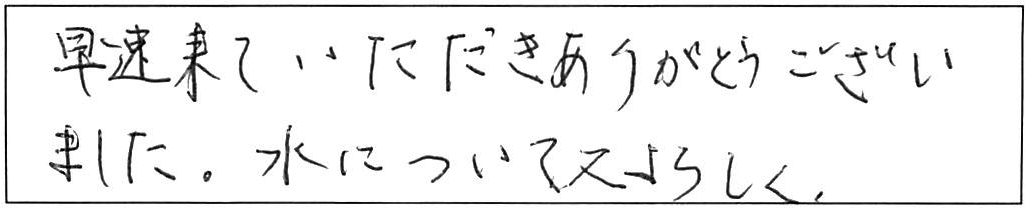 早速来ていただきありがとうござい
ました。水について又よろしく。